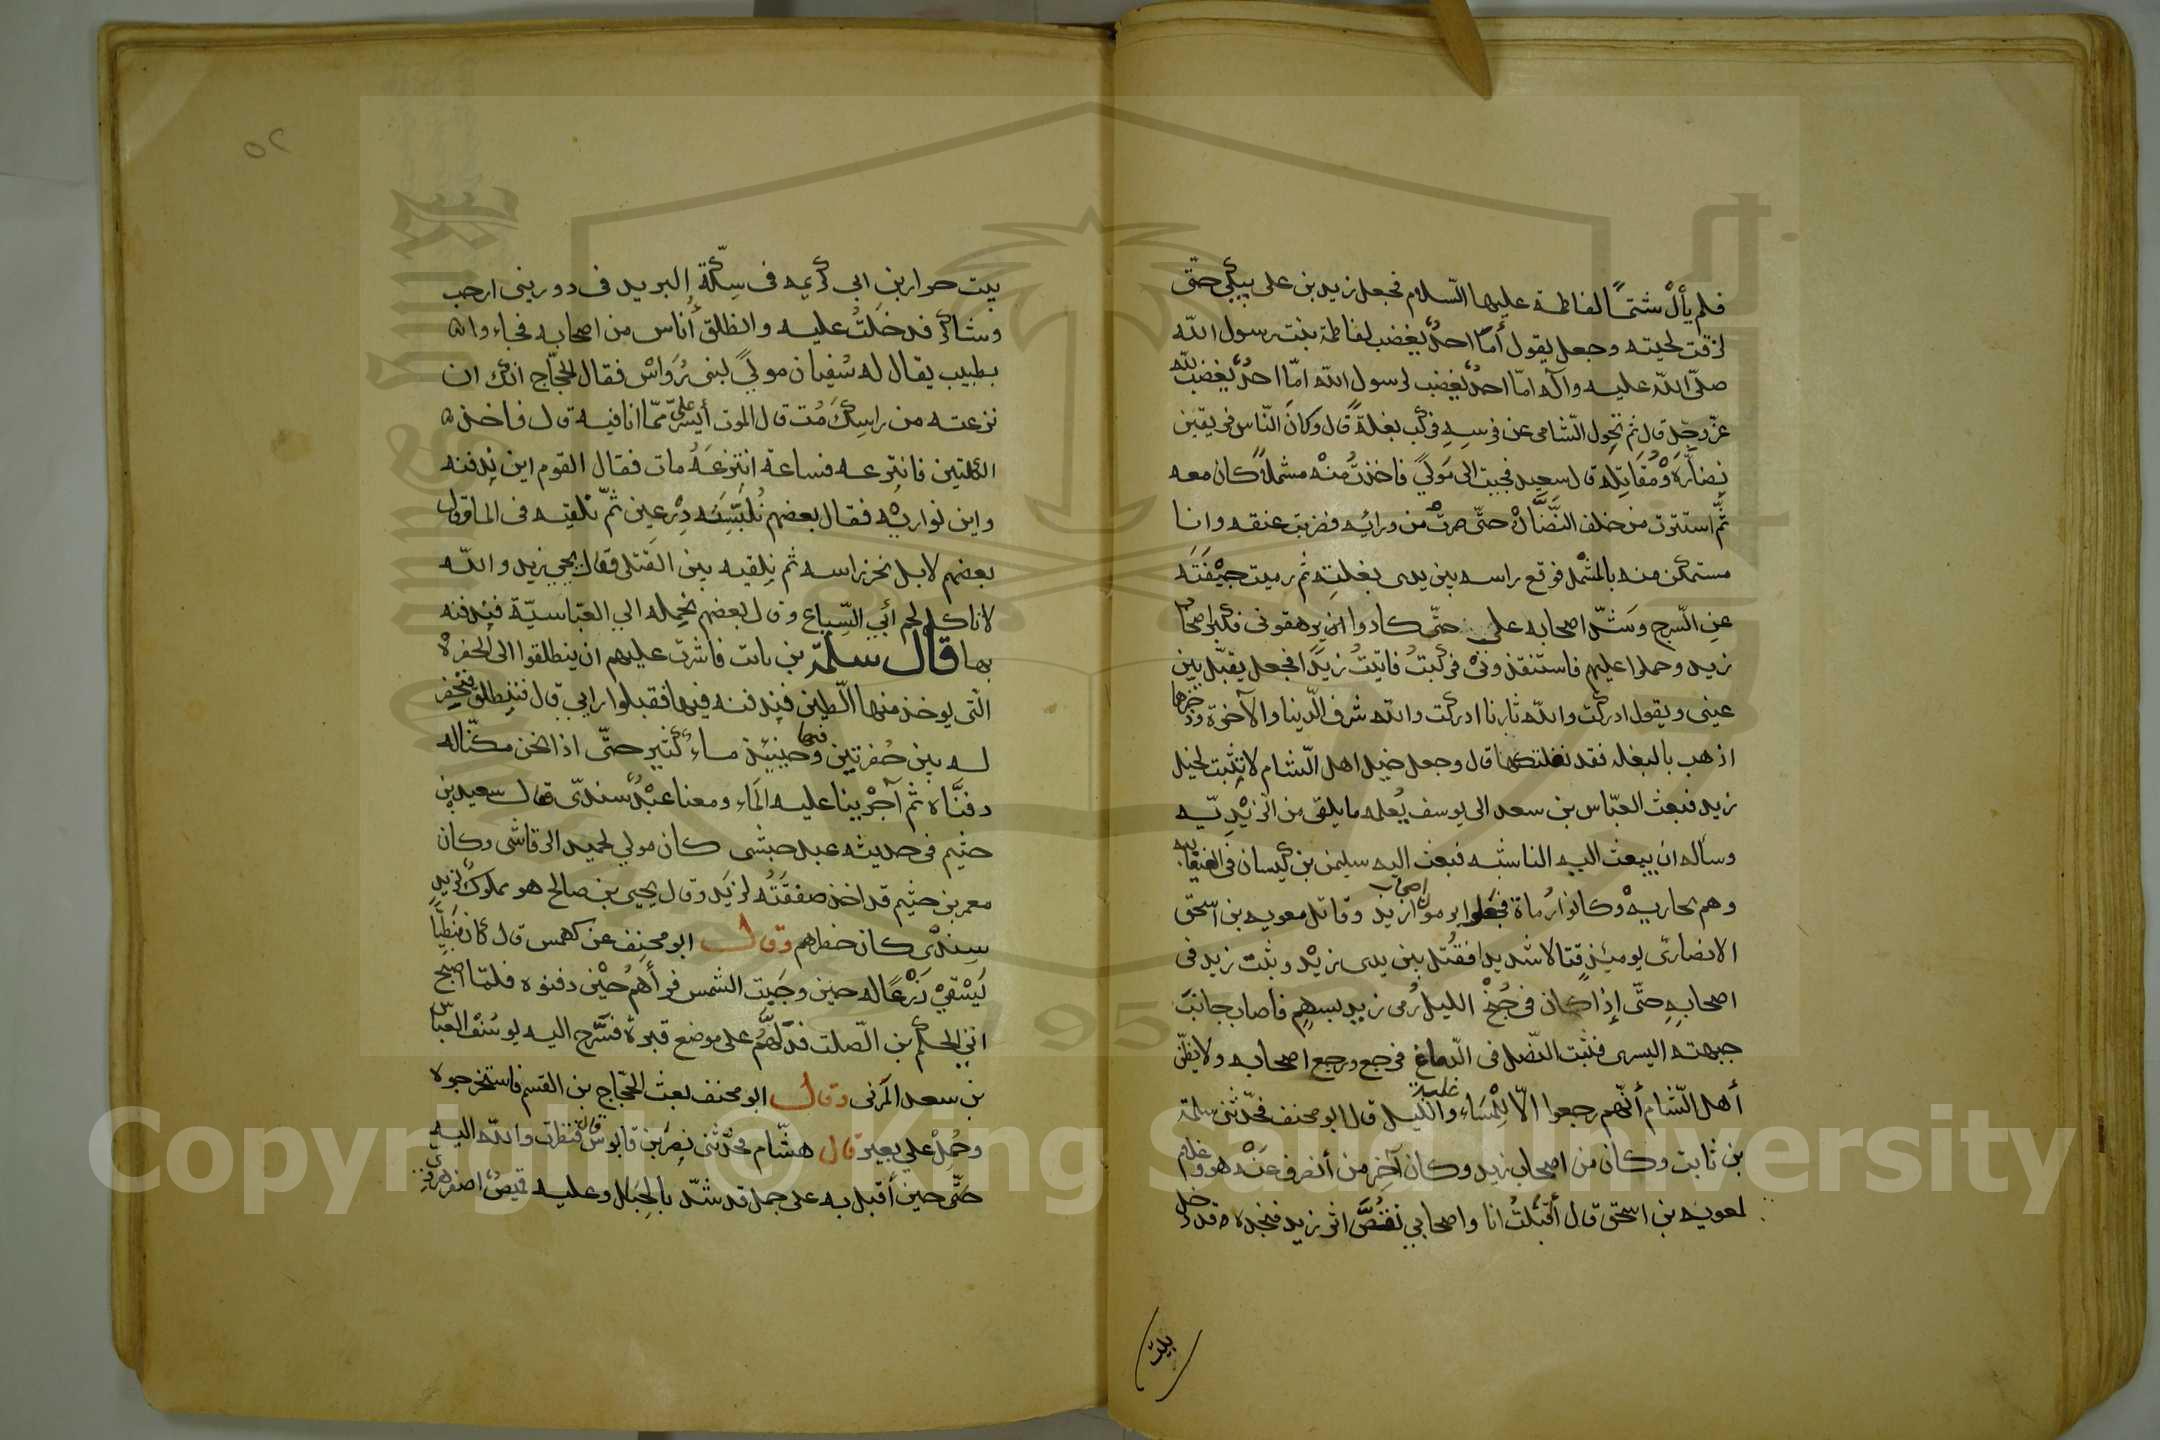 فلم يأل شتمًا لفاطمة عليها السّلام فجعل زيد بن على يبكي حتّى
لزقت لحيته وجعل يقول أمّا احدٌ يغضب لفاطمة بنت رسول اللّه
صلّى اللّه عليه وآله امّا احدٌ يغضب لرسول اللّه امّا احدٌ يغضب للّه
عزّ وجّل قال ثم تحول الشّامى عن فرسه فركب بغلة قال وكان النّاس فريقين
نضارة ومقاتله قال سعيد فجيت الى مولى فاخذت منه مشملا كان معه
ثمّ استترت من خلف النضّارة حتّى صرت من ورائه فضربت عنقه وانا
متمكن منه بالمشمل فوقع راسه بين يدى بغلته ثم رميت جيفته
عن السّرج وشدّ اصحابه علي حتّى كادوا ان يرهقونى فكبر اصحاب
زيد وحملوا عليهم فاستنقذونى فركبتُ فاتيتُ زيدًا فجعل يقبّل بين
عينى ويقول ادركت واللّه ثارنا ادركت واللّه شرف الدّنيا والآخرة وذخرها
اذهب بالبغله فقد نفلتكها قال وجعل خيل اهل الشّام لا تثبت لخيل
زيد فبعث العبّاس بن سعد الى يوسف يُعلمه ما يلقى من الزيديّه
وسأله ان يبعث اليه الناشبه فبعث اليه سليمن بن كيسان فى القيقانيه
وهم بخاريه وكانوا رُماة فجعلوا يرمون اصحاب زيد وقاتل معويه بن اسحق
الانصارى يوميذٍ قتالا شديدا فقُتل بين يدى زيد وثبت زيد فى
اصحابه حتّى إذا كان فى جُنح الليل رُمى زيد بسهم فاصاب جانب
جبهته اليسرى فثبت النصل فى الدّماغ فرجع ورجع اصحابه ولا يظنّ
أهل الشّام أنّهم رجعوا الّا للمساء والليل قال ابو مخنف فحدّثنى سلمة
بن ثابت وكان من اصحاب زيد وكان آخر من أنصرف عنه هو وغلام
لمعويه بن اسحق قال أقبلتُ انا واصحابي نقتصّ اثر زيد فنجده قد دخل
بيت
٥٢
بيت حرار بن ابى كريمه فى سكّة البريد فى دور بنى ارحب
وشاكر فدخلتُ عليه وانطلق أناس من اصحابه فجاءوا
بطبيب يقال له سُفيان مولىً لبنى رُواس فقال للحجّاج انك ان
نزعته من راسك مُت قال الموت أيسر علىّ ممّا انا فيه قال فاخذ
الكلبتين فانتزعه فساعة انتزعه مات فقال القوم اين ندفنه
واين نواريه فقال بعضهم نُلبسه درعين ثمّ نلقيه فى الما وقال
بعضهم لا بل نحز راسه ثم نلقيه بين القتلى فقال يحيى بن زيد واللّه
لا تاكل لحم أبي السّباع وقال بعضهم نحمله الي العبّاسيّة فندفنه
بها قال سلمة بن ثابت فاشرت عليهم ان ينطلقوا الى الحفرة
الّتى يوخذ منها الطين فندفنه فيها فقبلوا رايى قال فننطلق فنحفر
له بين حُفرتين وفيها حينئذ ماء كثير حتّى اذا نحن مكنّا له
دفنّاه ثم آجرينا عليه الماء ومعنا عبدٌ سندىّ قال سعيد بن
خثيم فى حديثه عبد حبشى كان مولى لحميد الرقاشى وكان
معمر بن خثيم قد اخذ صفقته لزيد وقال يحيى بن صالح هو مملوك لزيد
سندى كان حضرهم وقال ابو مخنف عن كهمس قال كان نبطيّا
يسقي زرعًا له حين وجبت الشمس فرأهم حين دفنوه فلمّا اصبح
اتى الحكم بن الصّلت فدلّهم على موضع قبرة فسّرح اليه يوسف العبّاس
بن سعد المرنى وقال ابو مخنف بعث الحجّاج بن القسم فاستخرجوه
وحُمل على بعير قال هشّام فحدّثنى نصر بن قابوس قال فنظرت واللّه اليه
حتّى حين أقبل به على جمل قد شدّ بالحبال وعليه قميص اصفر هروى
Copyright © King Saud University